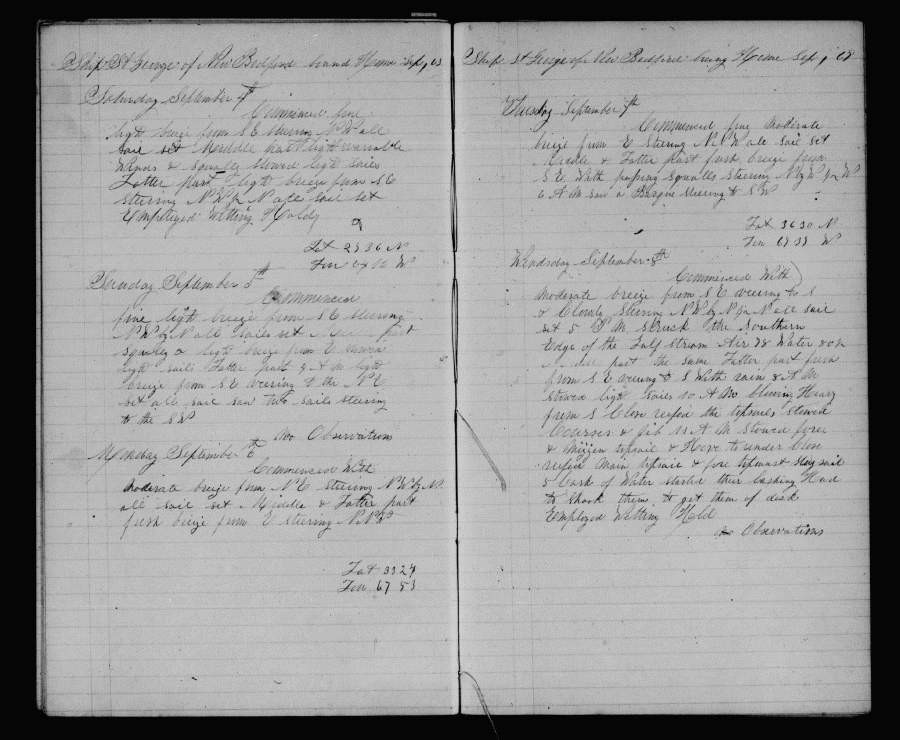 Ship St George of New Bedford bound Home Sep,
Saturday September 4th
Commenced fine
light breeze from S E steering N W all
sail set Meddle part light variable
Winds & squally stowed light sails
Latter part light breeze from S E
steering N W by N all sail set
Employed Wetting Hold
Lat 29 36 N
Lon W
Sunday September 5th
Commenced
fine light breeze from S E steering
N W by N all sails set part
squally & light breeze from E stowed
light sails Latter part light
breeze from S E veering to the N E
set all sail saw two sails steering
to the SW
No Observations
Monday September 6th
Commenced With
moderate breeze from N E steering N W by N
all sail set Middle & Latter part
fresh breeze from E steering N N W
Lat 33 24
Lon 67 53
Ship St George of New Bedford being Home Sep,
Tuesday September 7th
Commenced fine moderate
breeze from E steering N N W all sail set
Middle & Latter part fresh breeze from
S E With passing squalls steering N by W
6 A M saw a Barque steering to S W
Lat 36 30 N
Lon W
Wendsday September 8th
Commenced With
moderate breeze from S E veering to S
& Cloudy steering N W by N all sail
set 5 P M struck the Southern
Edge of the Gulf Stream Air 78 Water
Middle part the same Latter part fresh
from S E veering to S With rain A M
stowed light sails 10 A M blowing Heavy
from S Close reefed the topsails stowed
Courses & jib 11 A M stowed fore
& mizzen topsail & Hove to under Close
reefed main topsail & fore topmast stay sail
5 Cask of Water started their lashing Had
to shook them to get them of deck
Employed Wetting Hold
No Observations